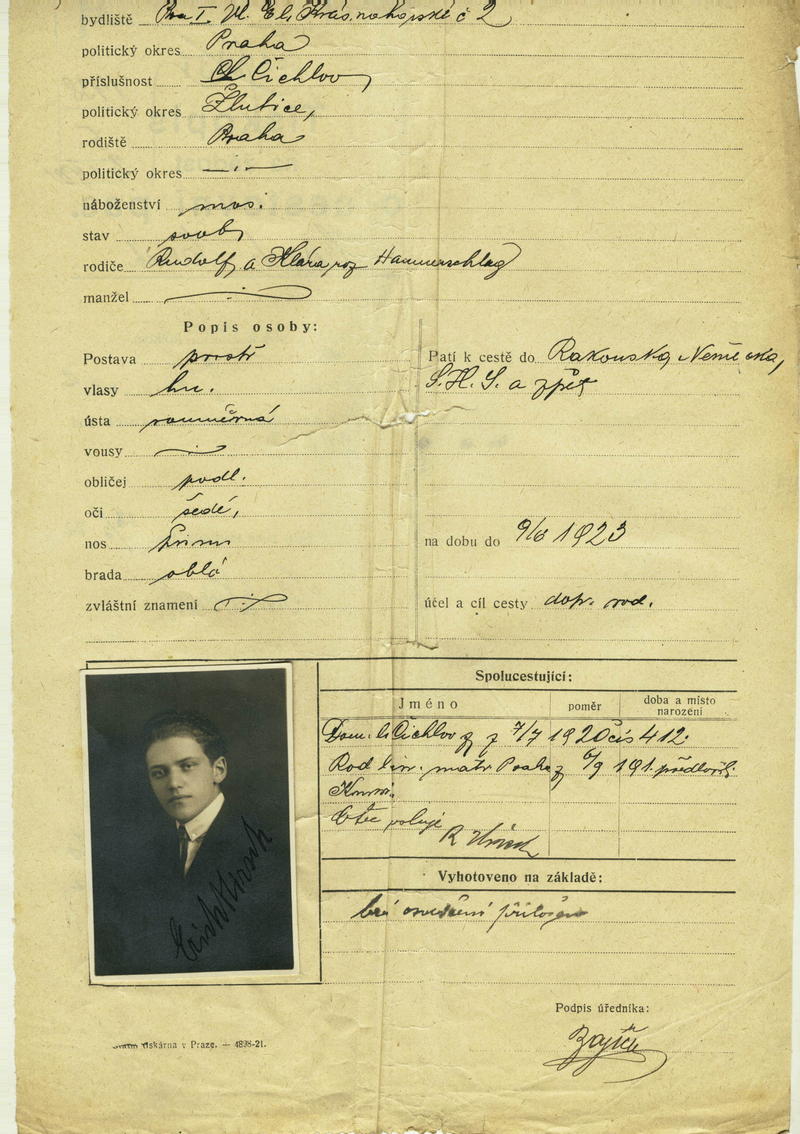 bydliště Pra I. Ul. El. Krásnohorské č 2
politický okres Praha
příslušnost Čichlov
politický okres Žlutice,
rodiště Praha
politický okres —〃—
náboženství mos.
stav svob.
rodiče Rudolf a Klára roz Hammerschlag
manžel
Popis osoby:
Postava prostř
vlasy hn.
ústa souměrná
vousy
obličej podl.
oči šedé,
nos
brada oblá
zvláštní znamení
Patí k cestě do Rakouska, Německa,
S. H. S. a zpět
na dobu do 9/6 1923
účel a cíl cesty dopr. rod.
Spolucestující:
Jméno poměr doba a místo narození
Dom. l. Čichlov z 7/7 1920 čís 412.
Rod matr Praha z 191. předlož.
Otec
R Hirsch
Vyhotoveno na základě:
osvědčení přiloženo
Erich Hirsch
Podpis úředníka:
tiskárna v Praze. — 4898-21.